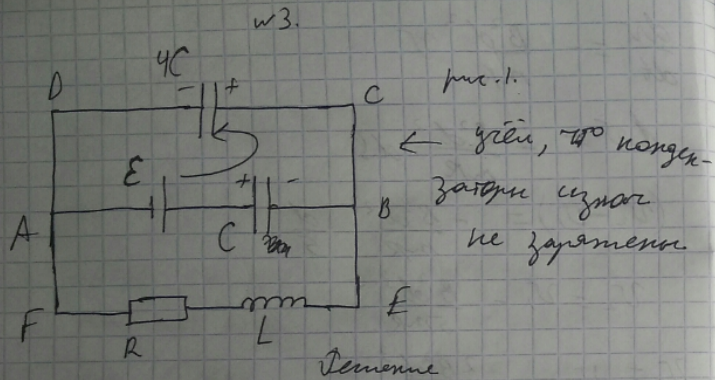 №3.
4C
D
- +
C
рис. 1.
← учёл, что конден-
заторы изнач
не заряжены
Ɛ
+ -
A
C
B
F
R
L
E
Решение